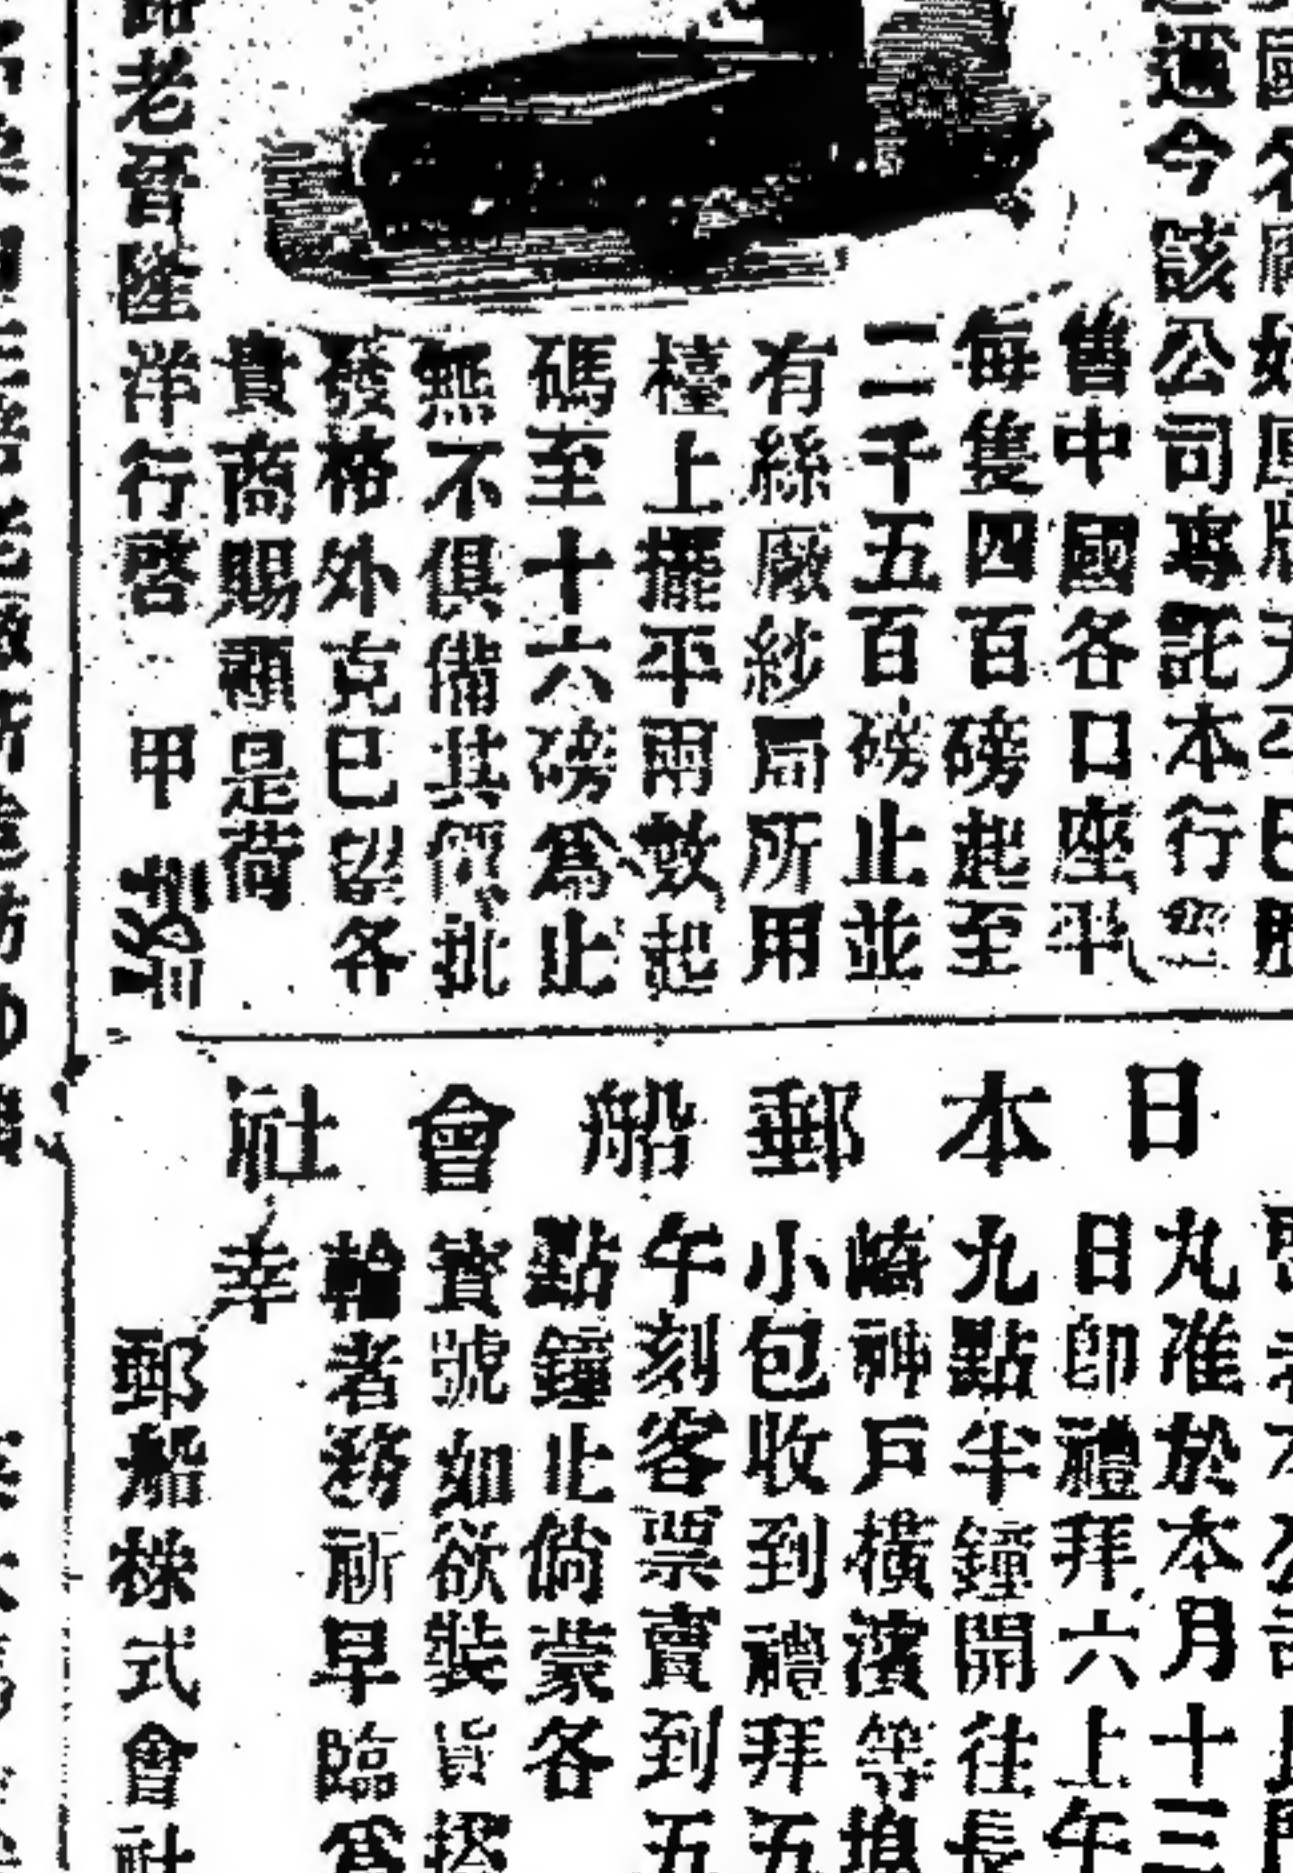 國名廠
邇今該公司專託本行
售中國各口座平
每隻四百磅起至
二千五百磅止並
有絲廠紗局所用
檯上擺平兩數起
碼至十六磅為止
無不俱備其價批
發格外克己望各
貴商賜顧是荷
老晉隆洋行啓 甲
日本郵船會社
丸准於本月十三
日卽禮拜六上午
九點半鐘開往長
崎神戶橫濱等埠
小包收到禮拜五
午刻客票賣到五
點鐘止倘蒙各
寶號如欲裝貨搭
輪者務祈早臨為
幸
郵船株式會社